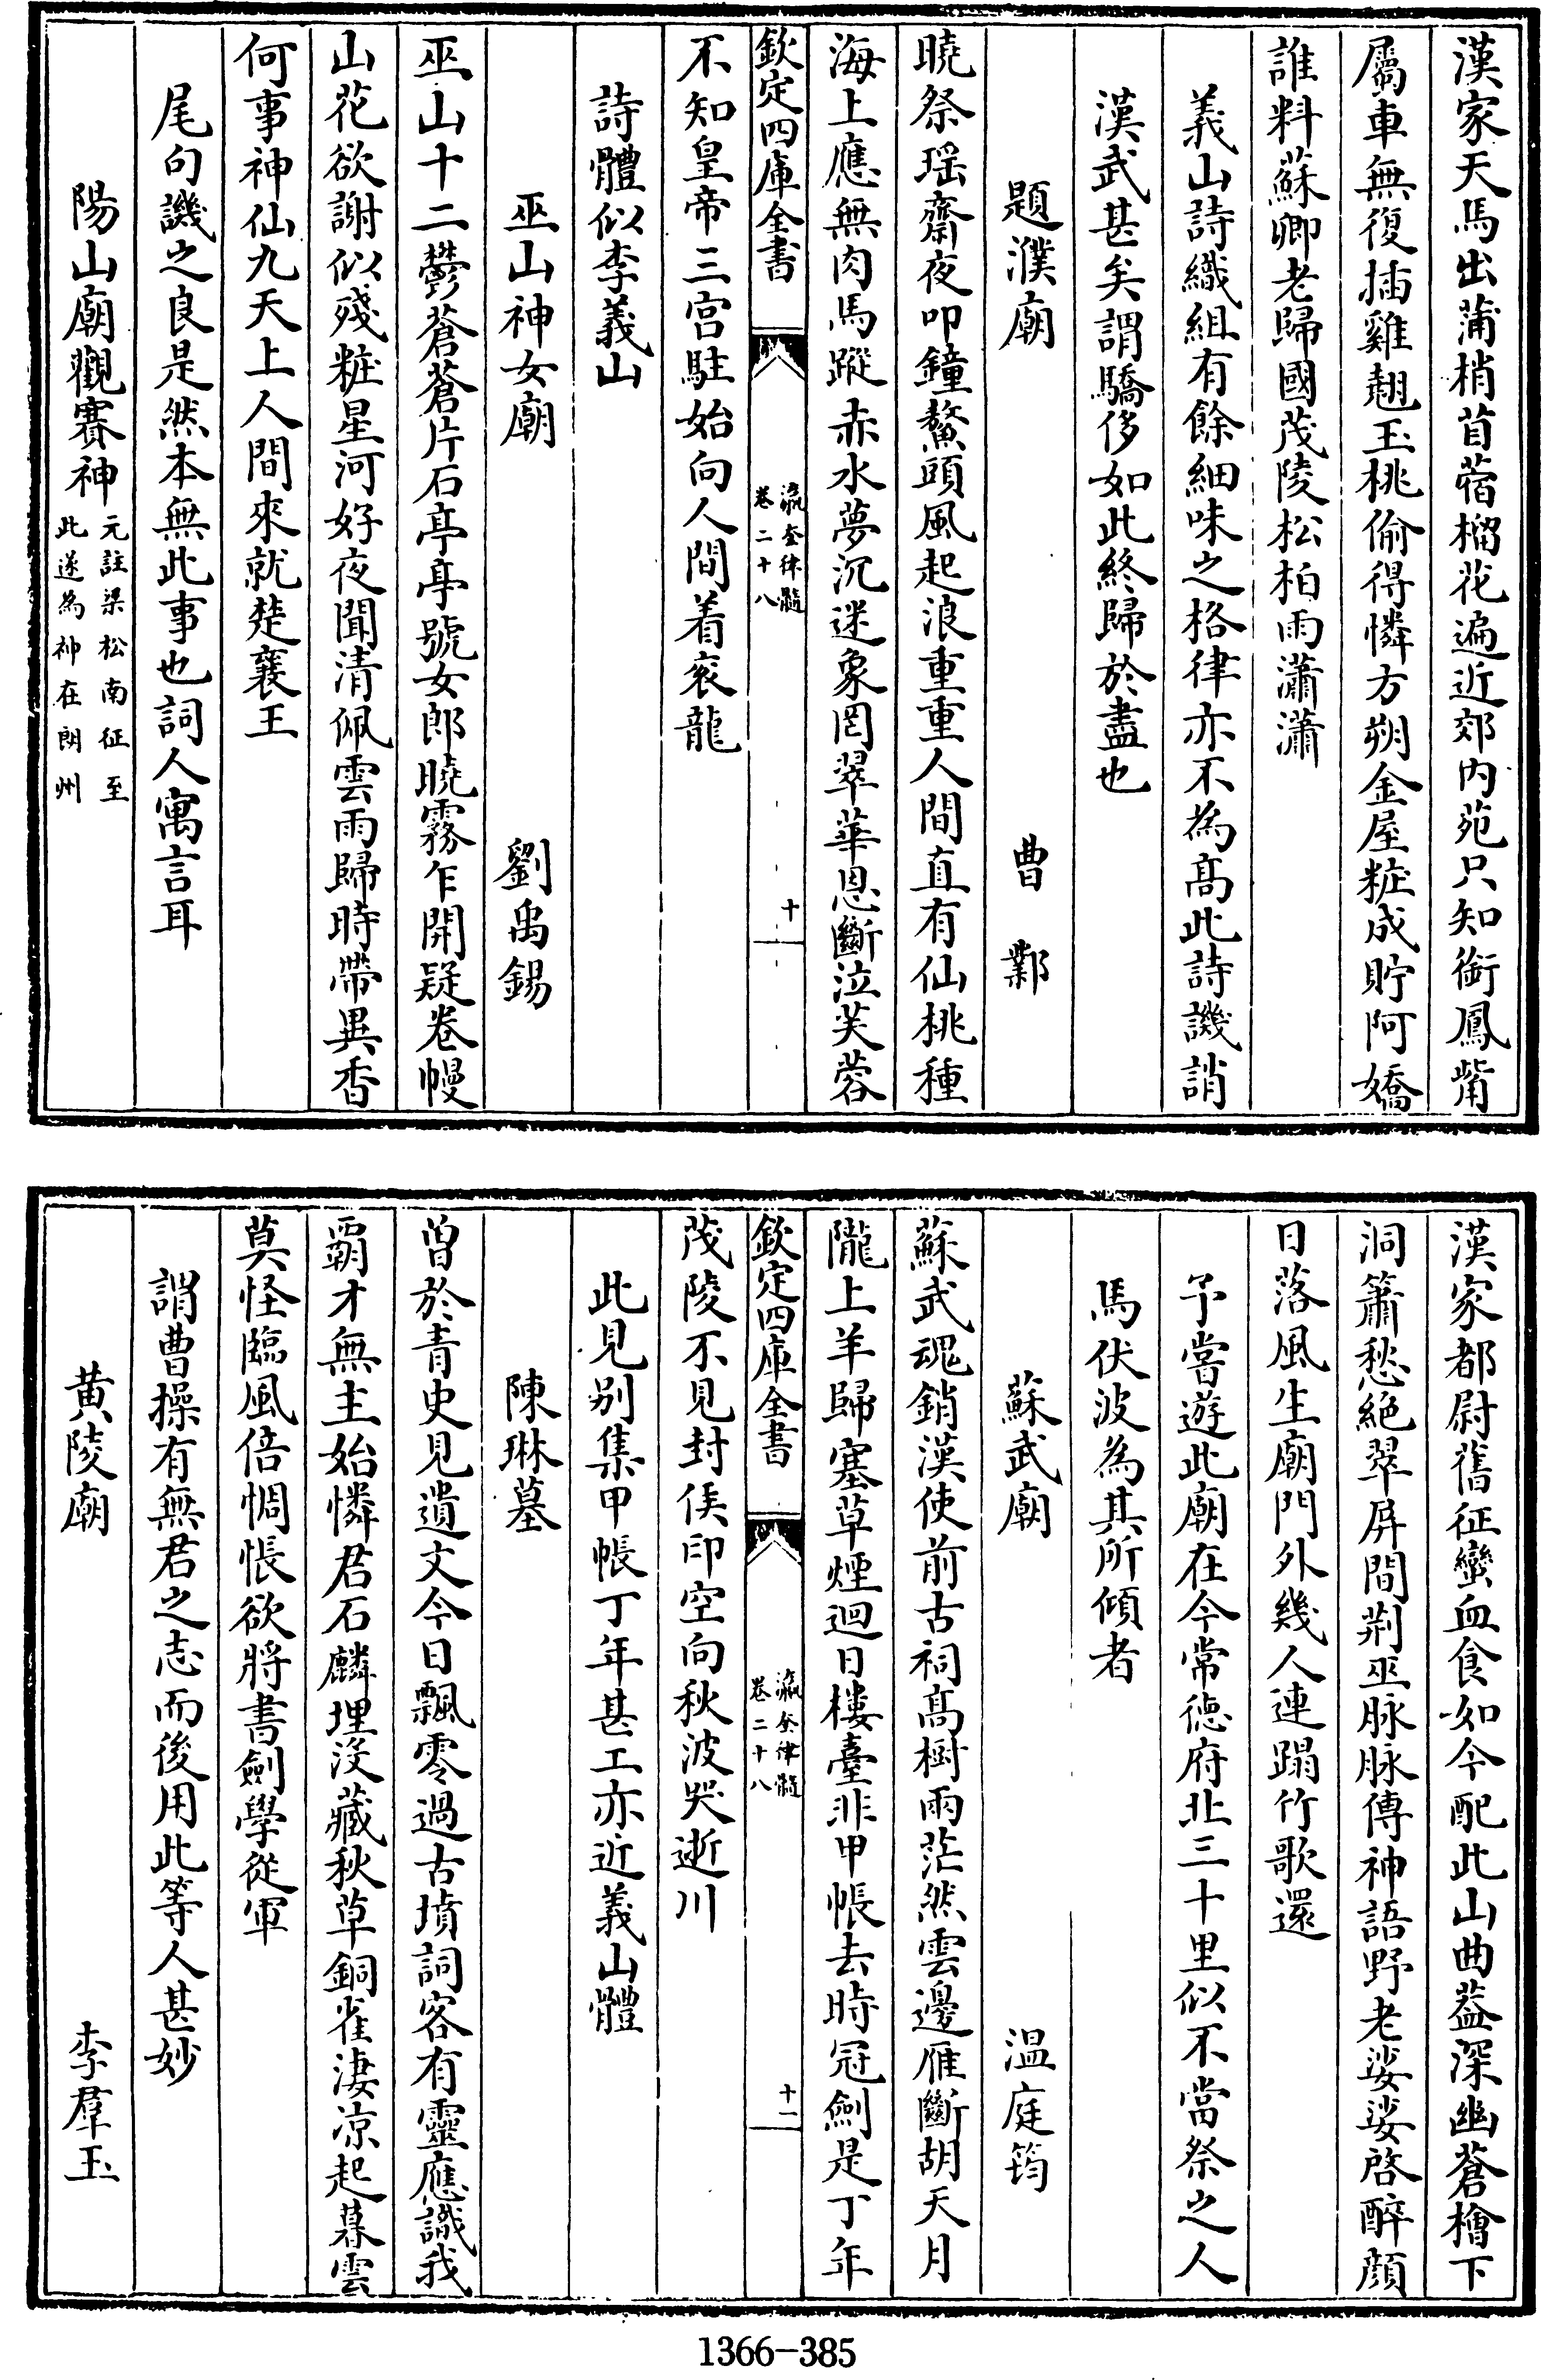 漢家天馬出蒲梢苜蓿榴花遍近郊內苑只知銜鳳觜
屬車無復插雞翹玉桃偷得憐方朔金屋粧成貯阿嬌
誰料蘇卿老歸國茂陵松柏雨瀟瀟
義山詩織組有餘細味之格律亦不為髙此詩譏誚
漢武甚矣謂驕侈如此終歸於盡也
題濮廟 曹鄴
曉祭瑶齋夜叩鐘鰲頭風起浪重重人間直有仙桃種
海上應無肉馬蹤赤水夢沉迷象罔翠華恩斷泣芙蓉
欽定四庫全書 瀛奎律髓 卷二十八 十
不知皇帝三宮駐始向人間着衮龍
詩體似李義山
巫山神女廟 劉禹錫
巫山十二鬱蒼蒼片石亭亭號女郎曉霧乍開疑卷幔
山花欲謝似殘粧星河好夜聞清佩雲雨歸時帶異香
何事神仙九天上人間來就楚襄王
尾句譏之良是然本無此事也詞人寓言耳
陽山廟觀賽神 元註梁松南征至此遂為神在朗州
漢家都尉舊征蠻血食如今配此山曲葢深幽蒼檜下
洞簫愁絕翠屏間荆巫脉脉傳神語野老娑娑啓醉顔
日落風生廟門外幾人連蹋竹歌還
予嘗遊此廟在今常德府北三十里似不當祭之人
馬伏波為其所傾者
蘇武廟 温庭筠
蘇武魂銷漢使前古祠髙樹雨茫然雲邊雁斷胡天月
隴上羊歸塞草煙迴日樓臺非甲帳去時冠劍是丁年
欽定四庫全書 瀛奎律髓 卷二十八 十一
茂陵不見封侯印空向秋波哭逝川
此見别集甲帳丁年甚工亦近義山體
陳琳墓
曽於青史見遺文今日飄零過古墳詞客有靈應識我
霸才無主始憐君石麟埋没藏秋草銅雀淒凉起暮雲
莫怪臨風倍惆悵欲將書劍學從軍
謂曹操有無君之志而後用此等人甚妙
黄陵廟 李羣玉
1366-385